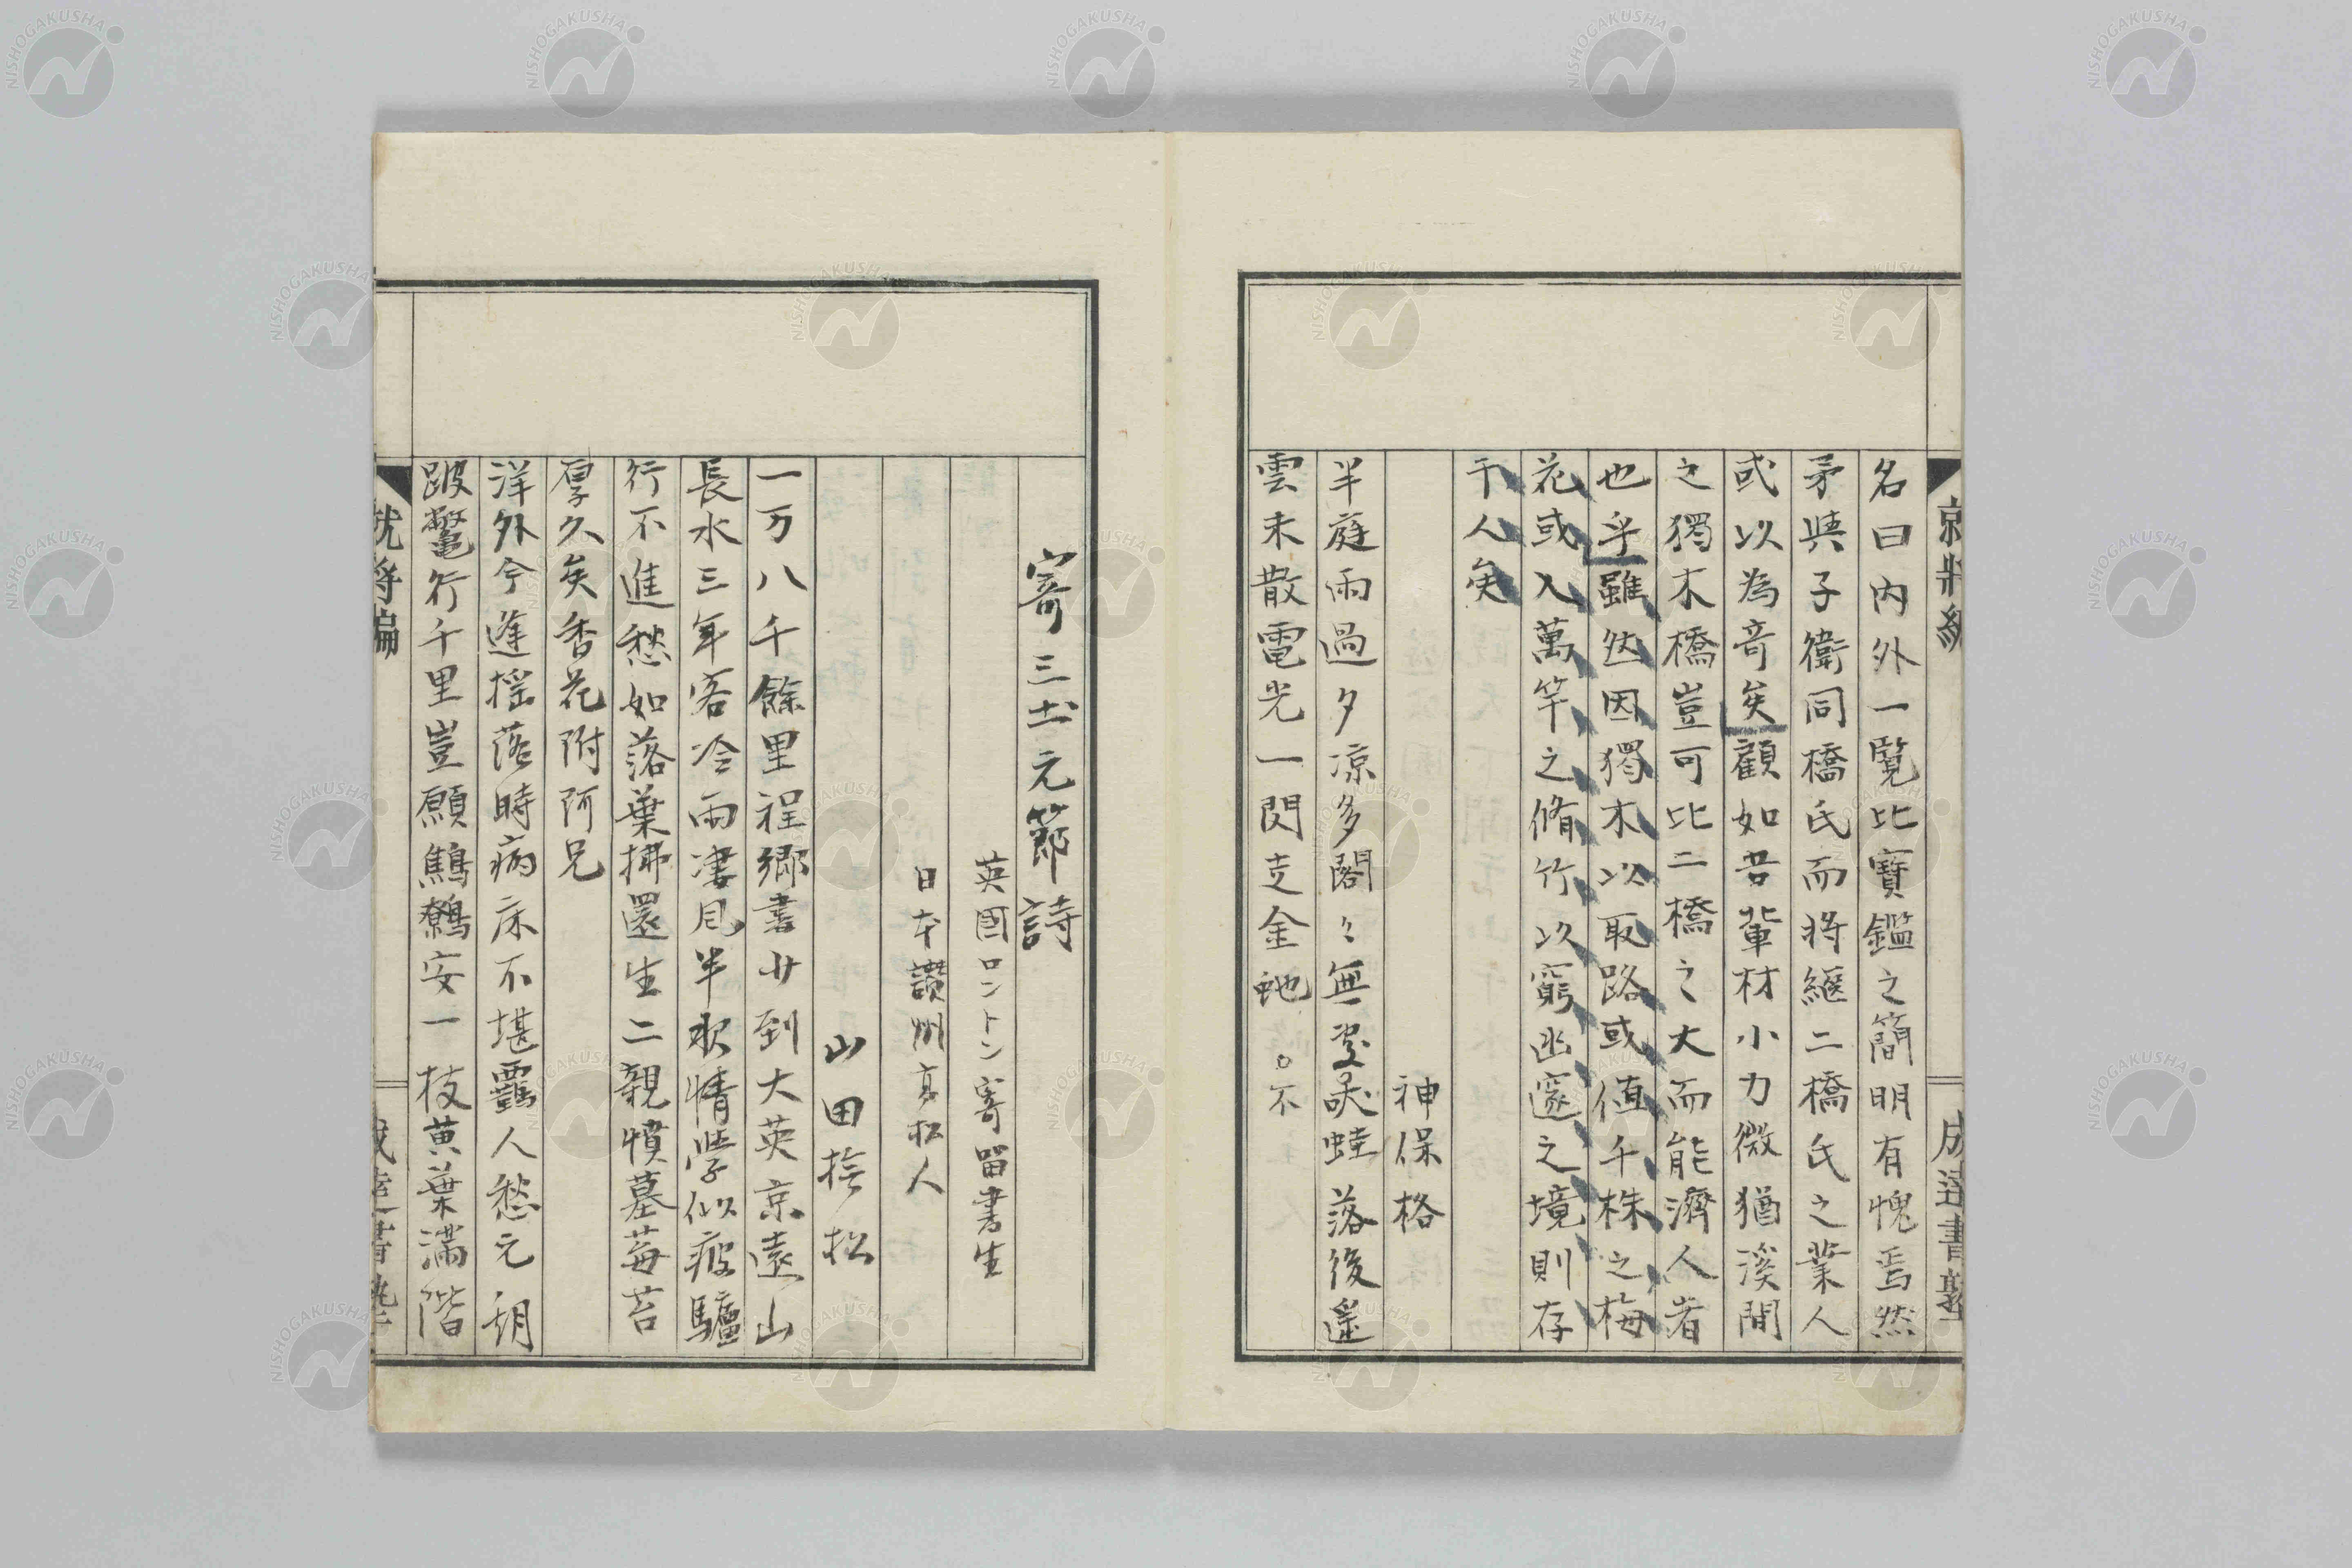 名曰内外一覧比寶鑑之簡明有愧焉然
矛與子衛同橋氏而将繼二橋氏之業人
或以為奇矣顧如吾輩材小力微猶溪間
之獨木橋豈可比二橋之大而能濟人者
也乎雖然因獨木以取路或値千株之梅
花或入萬竿之脩竹以窮幽邃之境則存
于人矣
神保格
半庭雨過夕涼多閣々無蛙落後遥
雲未散電光一閃走金虵 ○不
寄三士元節詩
英國ロントン寄留書生
日本讃州高松人
山田 松
一万八千餘里程郷書廿到大英京遠山
長水三年客冷雨凄風半夜情學似疲驢
行不進愁如落葉拂還生二親憤墓莓苔
厚久矣香花附阿兄
洋外今逢揺落時病床不堪覊人愁元胡
跛鼈行千里豈願鷦鷯安一枝黄葉滿階
就将編
成達書塾
NISHOGAKUSHA